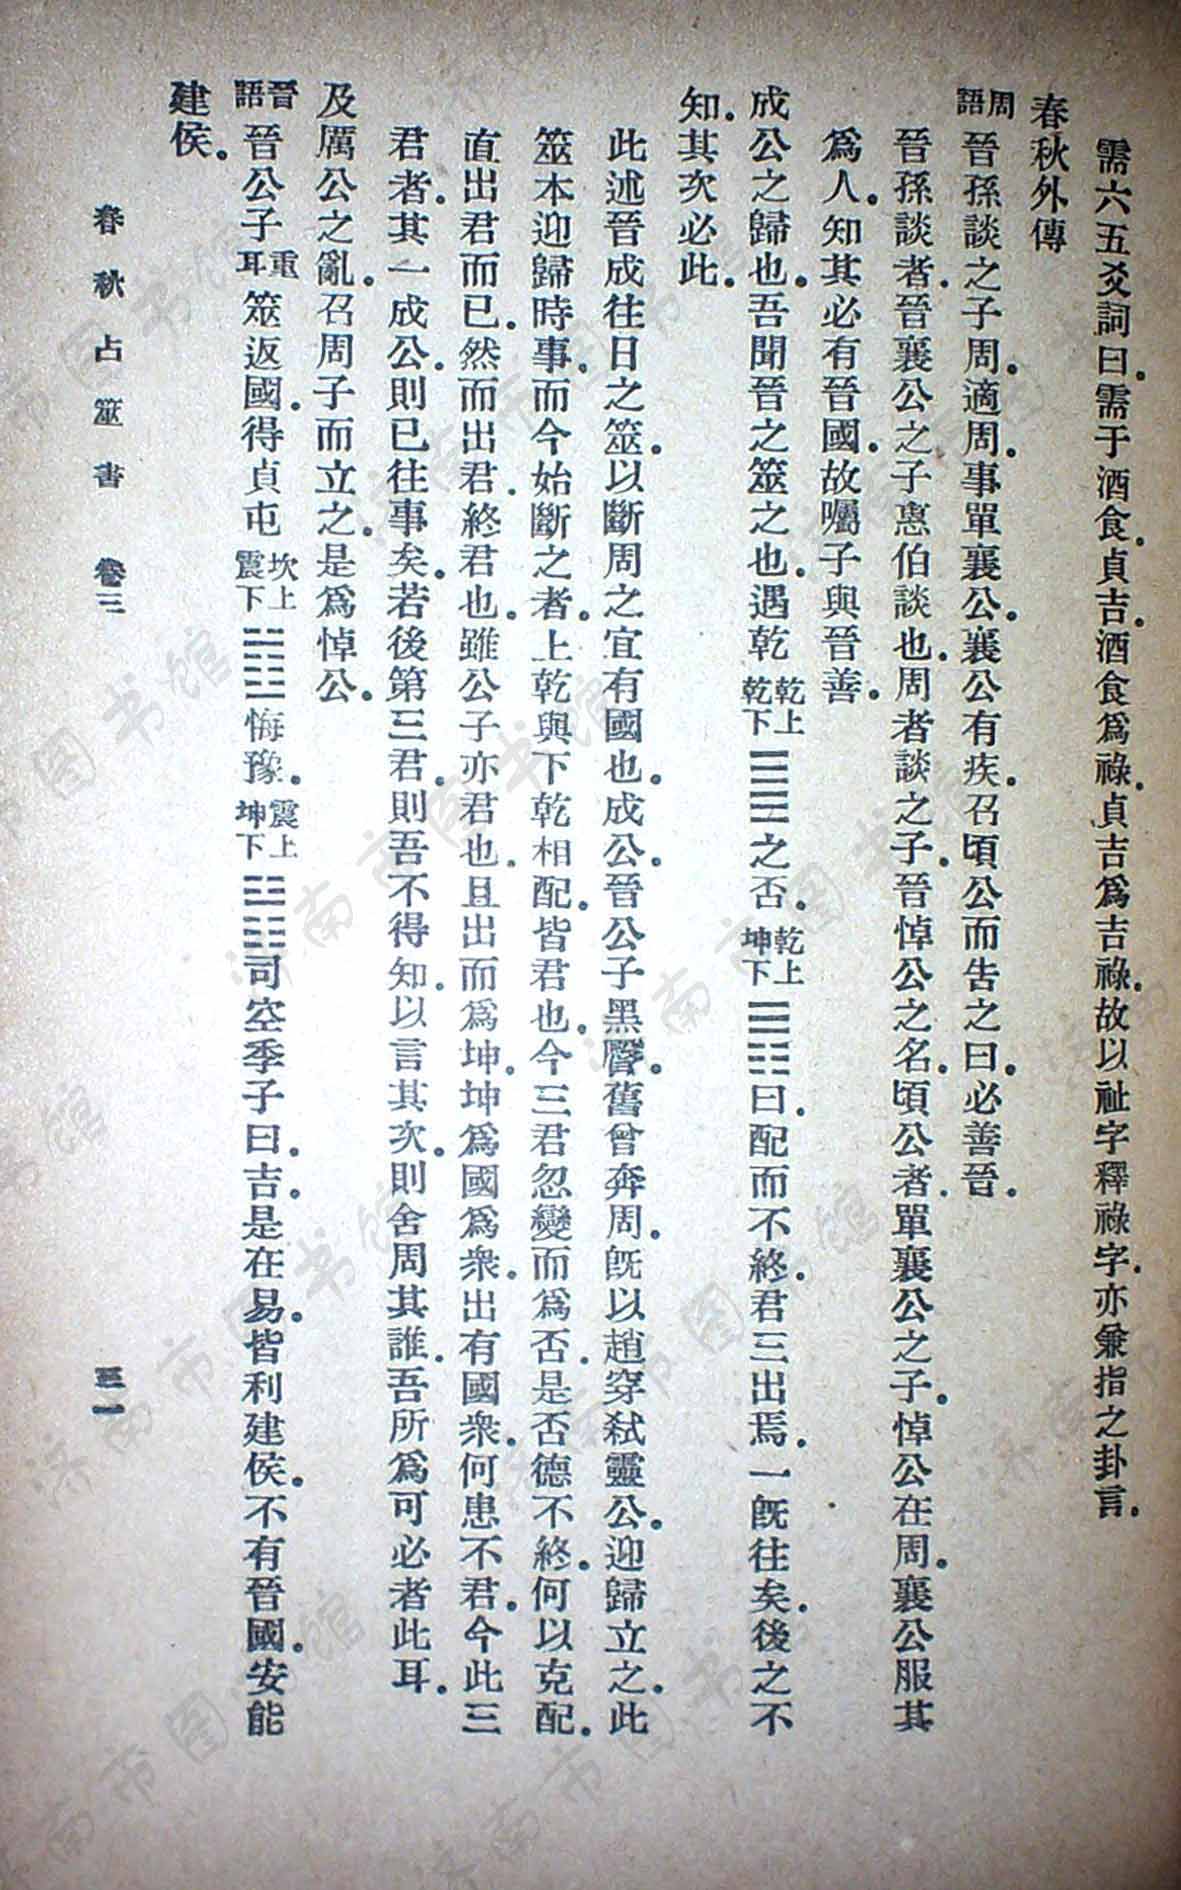 需六五爻詞曰。需于酒食。貞吉。酒食爲祿。貞吉爲吉祿。故以祉字釋祿字。亦兼指之卦言。
春秋外傳
周語晉孫談之子周。適周。事單襄公。襄公有疾。召頃公而告之曰。必善晉。
晉孫談者。晉襄公之子惠伯談也。周者談之子。晉悼公之名。頃公者。單襄公之子。悼公在周。襄公服其
爲人。知其必有晉國。故囑子與晉善。
成公之歸也。吾聞晉之筮之也。遇乾乾上乾下☰☰之否。乾上坤下☰☷曰。配而不終。君三出焉。一旣往矣。後之不
知。其次必此。
此述晉成往日之筮。以斷周之宜有國也。成公。晉公子黑臀。舊曾奔周。旣以趙穿弒靈公。迎歸立之。此
筮本迎歸時事。而今始斷之者。上乾與下乾相配。皆君也。今三君忽變而爲否。是否德不終。何以克配。
直出君而已。然而出君。終君也。雖公子亦君也。且出而爲坤。坤爲國爲衆。出有國衆。何患不君。今此三
君者。其一成公。則已往事矣。若後第三君。則吾不得知。以言其次。則舍周其誰。吾所爲可必者此耳。
及厲公之亂。召周子而立之。是爲悼公。
晉語晉公子重耳筮返國。得貞屯坎上震下☵☳悔豫。震上坤下☳☷司空季子曰。吉。是在易。皆利建侯。不有晉國。安能
建侯。
春秋占筮書 卷三 三一
济南市图书馆